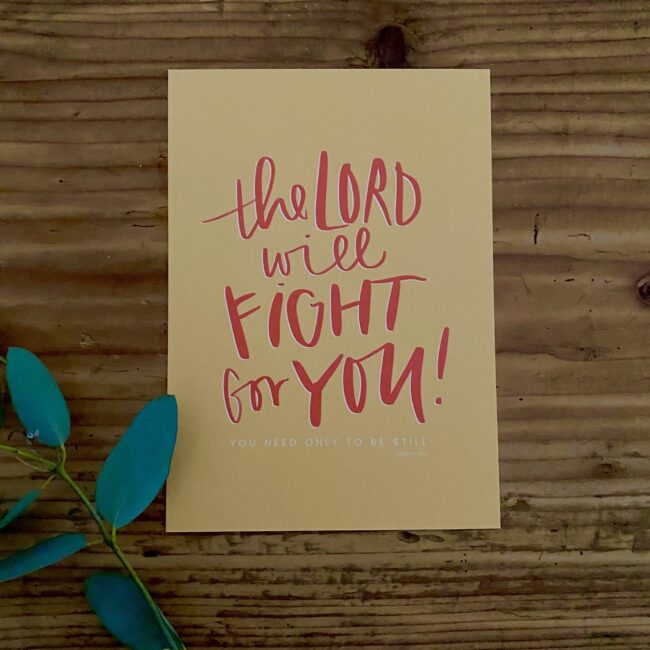 the LORD
will
FIGHT
for YOU!
YOU NEED ONLY TO BE STILL